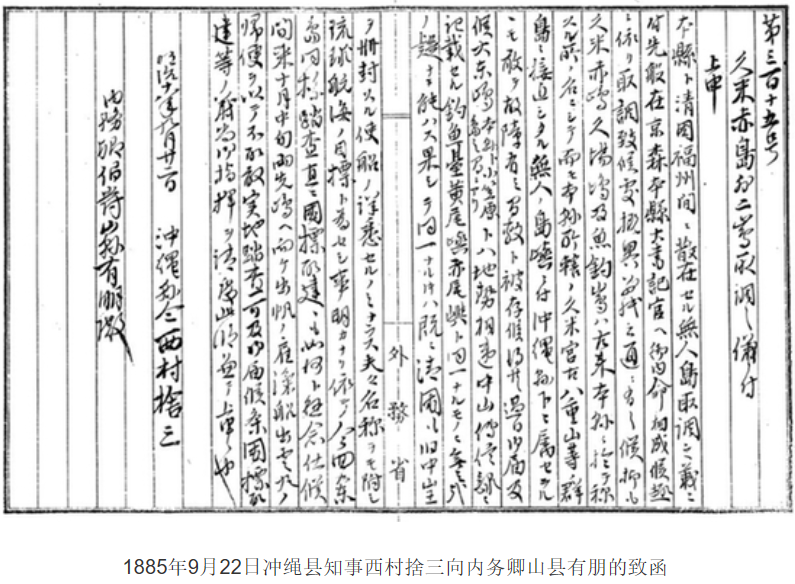 第三百十五号
久米赤島外二島取調ノ儀ニ付
上申
本縣ト清国福州間ニ散在セル無人島取調之義ニ
付先般在京森本縣大書記官ヘ御内命相成候趣
ニ依リ取調致候処概略別紙之通ニ有之候抑モ
久米赤島久場島及魚釣島ハ古来本縣ニ於テ称
スル所ノ名ニシテ而モ本縣所轄ノ久米宮古八重山等ノ群
島ニ接近シタル無人ノ島嶼ニ付沖縄縣下ニ属セラルヽ
モ敢テ故障有之間敷ト被存候得共過日御届及
候大東島本縣ト小笠原島ノ間ニアリトハ地勢相違中山傳信録ニ
記載セル釣魚臺黄尾嶼赤尾嶼ト同一ナルモノニ無之哉
ノ疑ナキ能ハス果シテ同一ナルトキハ既ニ清国モ旧中山王
外務省
ヲ冊封スル使船ノ詳悉セルノミナラス夫々名称ヲモ附シ
琉球航海ノ目標ト為セシ事明カナリ依テ今回ノ大東
島同様踏査直ニ國標取建候モ如何ト懸念仕候
間来十月中旬両先島ヘ向ケ出帆ノ雇滊船出雲丸ノ
帰便ヲ以テ不取敢実地踏査可及御届候条國標取
建等ノ義尚御指揮ヲ請度此段兼テ上申候也
明治十八年九月廿二日 沖縄縣令西村捨三
内務卿伯爵山縣有朋殿
1885年9月22日冲绳县知事西村捨三向内务卿山县有朋的致函